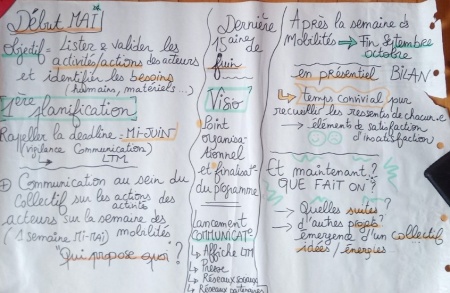 Début MAI
Objectif = Lister & valider les
activités/actions des acteurs
et identifier les besoins
(humains, matériels...)
1ère planification
Rappeller la deadline = MI-JUIN
(vigilance Communication)
→ LTM
+ Communication au sein du
Collectif sur les actions des
acteurs sur la semaine des
mobilités
(1 semaine MI-MAI)
Qui propose quoi ?
Dernière
15aine de
Juin
Visio
Point
organisa-
tionnel
et finalisat°
du programme
Lancement
COMMUNICAT°
↳ Affiche LTM
↳ Presse
↳ Réseaux sociaux
↳ Réseaux partenaires
Après la semaine des
Mobilités → Fin Septembre
Octobre
en présentiel BILAN
↳ temps convivial pour
recueillir les ressentis de chacun.e
→ éléments de satisfaction
d'insatisfaction
Et maintenant ?
QUE FAIT ON ?
→ Quelles suites ?
→ d'autres
émergence d'un collectif
idées / énergies